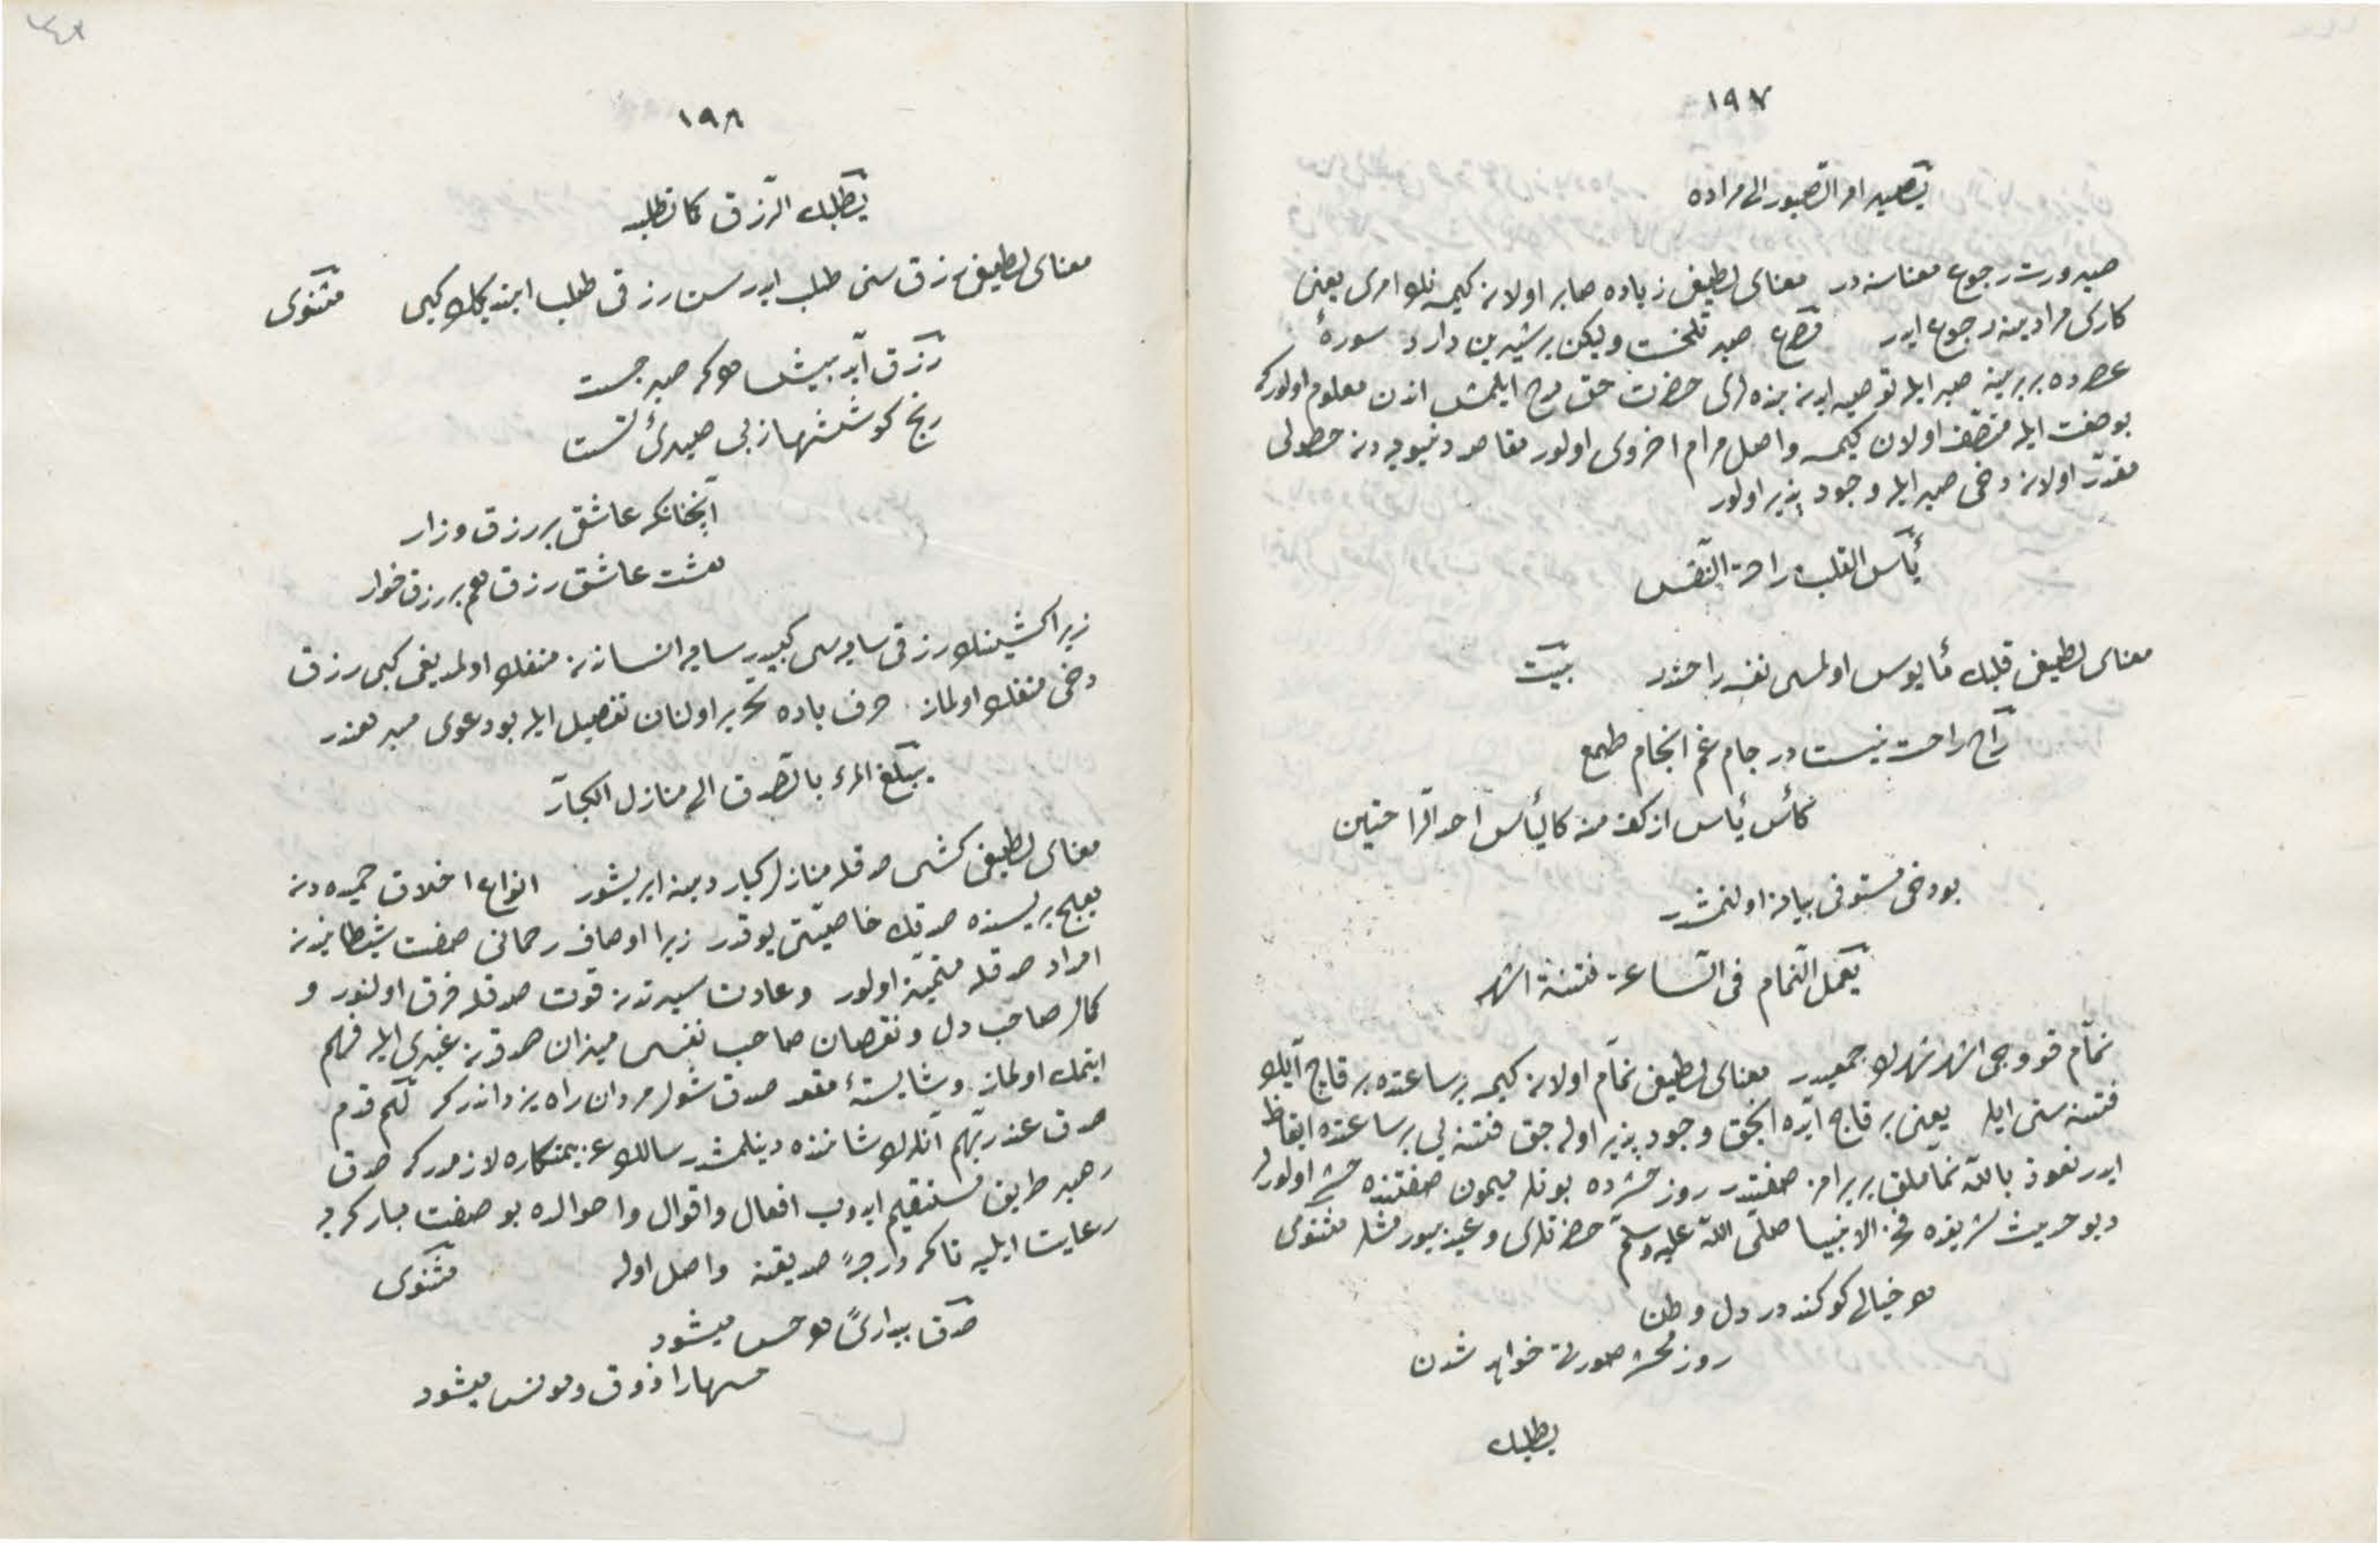 ١٩٧
يصير امر الصبور الى مراده
صيرورت رجوع معناسنه در معناى لطيفى زياده صابر اولان كيمسه نك امرى يعنى
كارى مرادينه رجوع ايدر مصرع صبر تلخست وليكن بر شيرين دارد سورهٔ
عصرده بربرينه صبر ايله توصيه ايدن بنده لرى حضرت حق مدح ايلمش اندن معلوم اولور كه
بو صفت ايله متصف اولان كيمسه واصل مرام اخروى اولور مقاصد دنيويه دن حصولى
مقدر اولان دخى صبر ايله وجود پذير اولور
يأس القلب راحة النفس
معناى لطيفى قلبك مأيوس اولمسى نفسه راحتدر بيت
راح راحت نيست در جام غم انجام طمع
كأس يأس از كف منه كاليأس احد الراحتين
بو دخى مستوفى بيان اولنمشدر
يعمل النمام فى الساعة فتنة اشهر
نمام قووجى اشهر شهرك جمعيدر معناى لطيفى نمام اولان كيمسه بر ساعتده بر قاچ آيلك
فتنه سنى ايلر يعنى بر قاچ آيده انجق وجود پذير اوله جق فتنه يى بر ساعتده ايقاظ
ايدر نعوذ بالله نماملق بر برامز صفتدر روز حشرده بونلر ميمون صفتنده حشر اولورلر
ديو حديث شريفده فخر الانبيا صلى الله عليه وسلم حضرتلرى وعيد بيورمشلر مثنوى
هر خيالى كو كند در دل وطن
روز محشر صورتى خواهد شدن
يطلبك
١٩٨
يطلبك الرزق كما تطلبه
معناى لطيفى رزق سنى طلب ايدر سن رزقى طلب ايتديكك كبى مثنوى
رزق آيد پيش هر كه صبر جست
رنج كوششها ز بى صبرىٔ تست
آنچنانكه عاشقى بر رزق وزار
هست عاشق رزق هم بر رزق خوار
زيرا كشينك رزقى سايه سى كبيدر سايه انساندن منفك اولمديغى كبى رزق
دخى منفك اولماز حرف باده تحرير اولنان تفصيل ايله بو دعوى مبرهندر
يبلغ المرء بالصدق الى منازل الكبار
معناى لطيفى كشى صدقله منازل كبار دينه ايريشور انواع اخلاق حميده دن
هيچ بريسنده صدقك خاصيتى يوقدر زيرا اوصاف رحمانى صفت شيطانيدن
امداد صدقله متميز اولور وعادت سيرتدن قوت صدقله فرق اولنور و
كمال صاحب دل ونقصان صاحب نفس ميزان صدقدن غيرى ايله فهم
ايتمك اولماز وشايستهٔ مقعد صدق شول مردان راه يزداندر كه لهم قدم
صدق عند ربهم آنلرك شاننده دينلمشدر سالك عزيمتكاره لازمدر كه صدق
رهبر طريق مستقيم ايدوب افعال واقوال واحوالده بو صفت مباركه يه
رعايت ايليه تا كه درجهٔ صديقه واصل اوله مثنوى
صدق بيدارىٔ هر حس ميشود
حسهارا ذوق ومونس ميشود